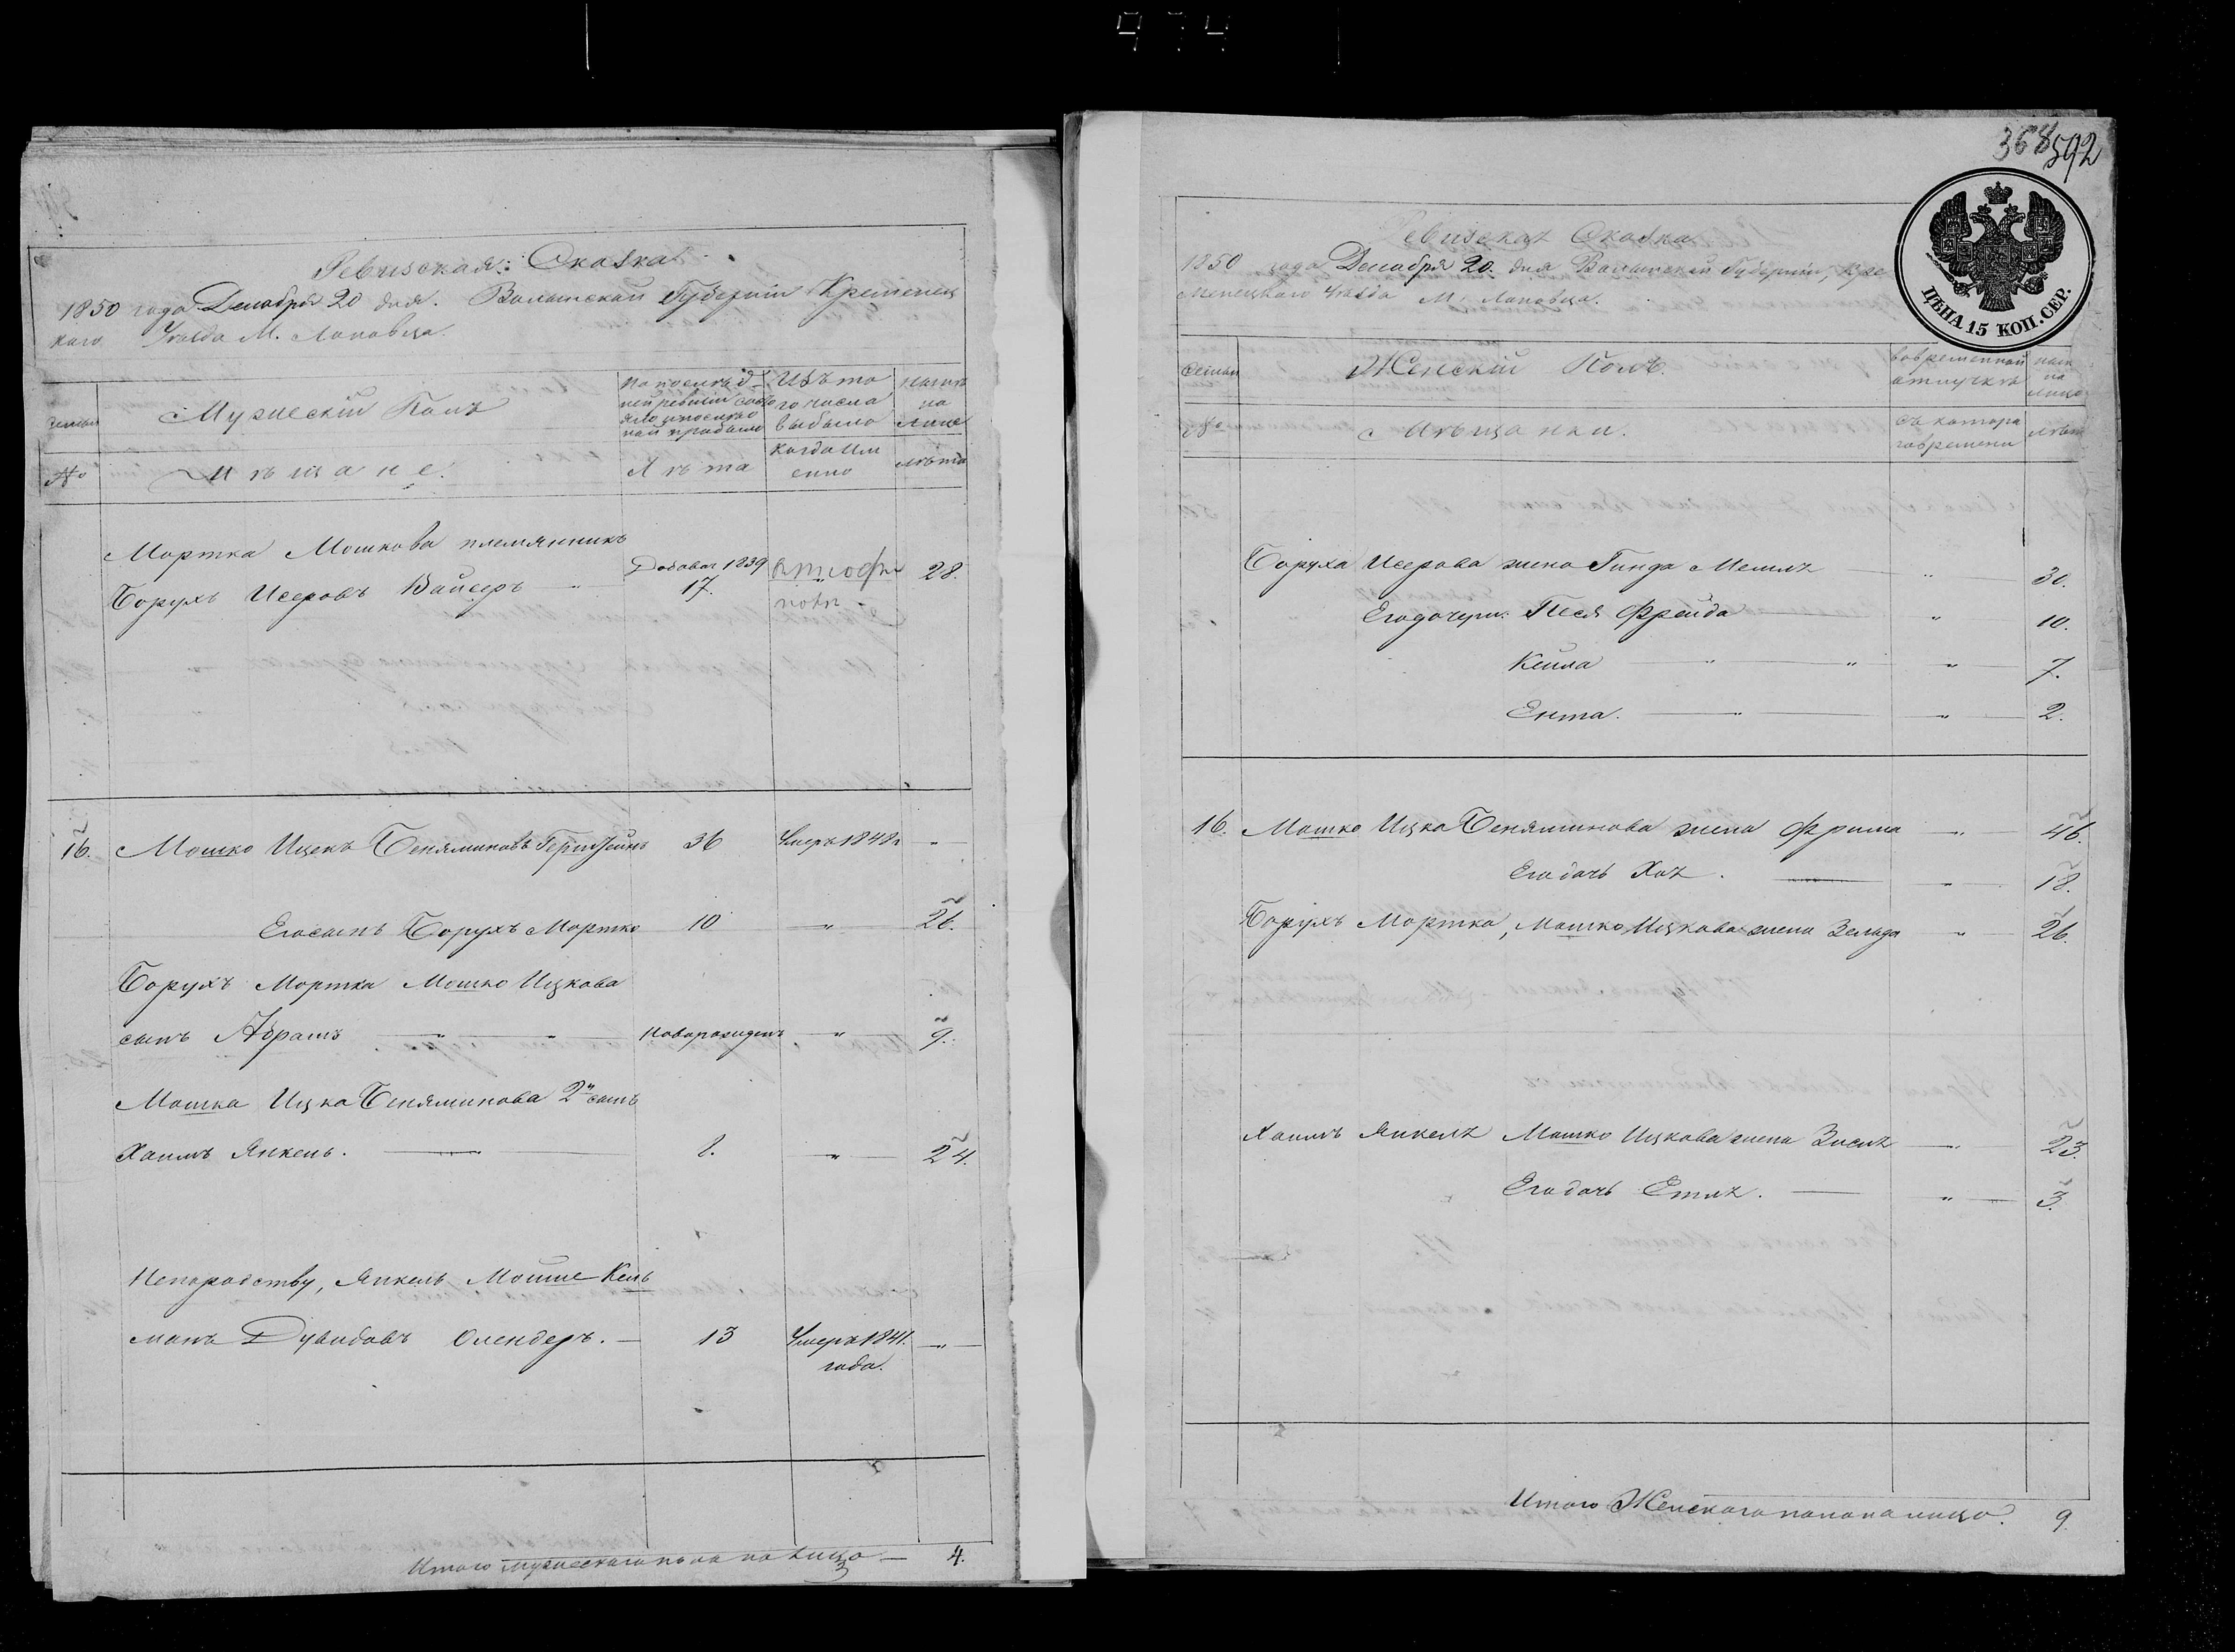 Ревизская Сказка
1850 года Декабря 20 дня. Волынской Губернии Кременец
каго Уезда М. Лановца.
Семьи
Мужескій Полъ
По послед
ней ревизіи состо
яло и после
ней прибыло
Изъ то
го числа
выбыло
ныне
на
лице
№
Мѣщане.
Лѣта
Когда им
енно
лѣта
Мортка Мошкова племянникъ
Борухъ Исеровъ Вайсеръ
Добавл 1839
17.
28.
16. Мошко Ицекъ Беняминовъ 36 Умеръ 1848 г
Егосынъ Борухъ Мортко 10 " 26.
Борухъ Мортка Мошко Ицкова
сынъ Абрамъ " " Новорожденъ " 9.
Мошка Ицка Беняминова 2й сынъ
Хаимъ Янкель. 8. " 24.
Непородству, Янкель Мойше Кель
манъ Дувидовъ Олендеръ. 13 Умеръ 1841. "
года.
Итого мужескаго пола на лицо 4.
3
368 592
ЦѢНА 15 КОП. СЕР.
Ревизская Сказка
1850 года Декабря 20. дня Волынской Губерніи, Кре
менецкаго Уезда М. Лановца.
Семьи
Женскій Полъ.
Вовременной
отлучкѣ
ныне
на
лицо
№
Мѣщанки.
Съ котора
говремени
лѣта
Боруха Исерова жена Гинда Менля " 30.
Егодочери: Песя Фрейда " 10.
Кейла " " " 7.
Ента. " " 2.
16. Мошко Ицка Беняминова жена Фрима " 46.
Егодочь Хая. " 18.
Борухъ Мортка, Мошко Ицкова жена Зельда " 26.
Хаимъ Янкеля Мошко Ицкова жена Зися " 23.
Егодочь Етля. " 3.
Итого Женскаго пола на лицо. 9.